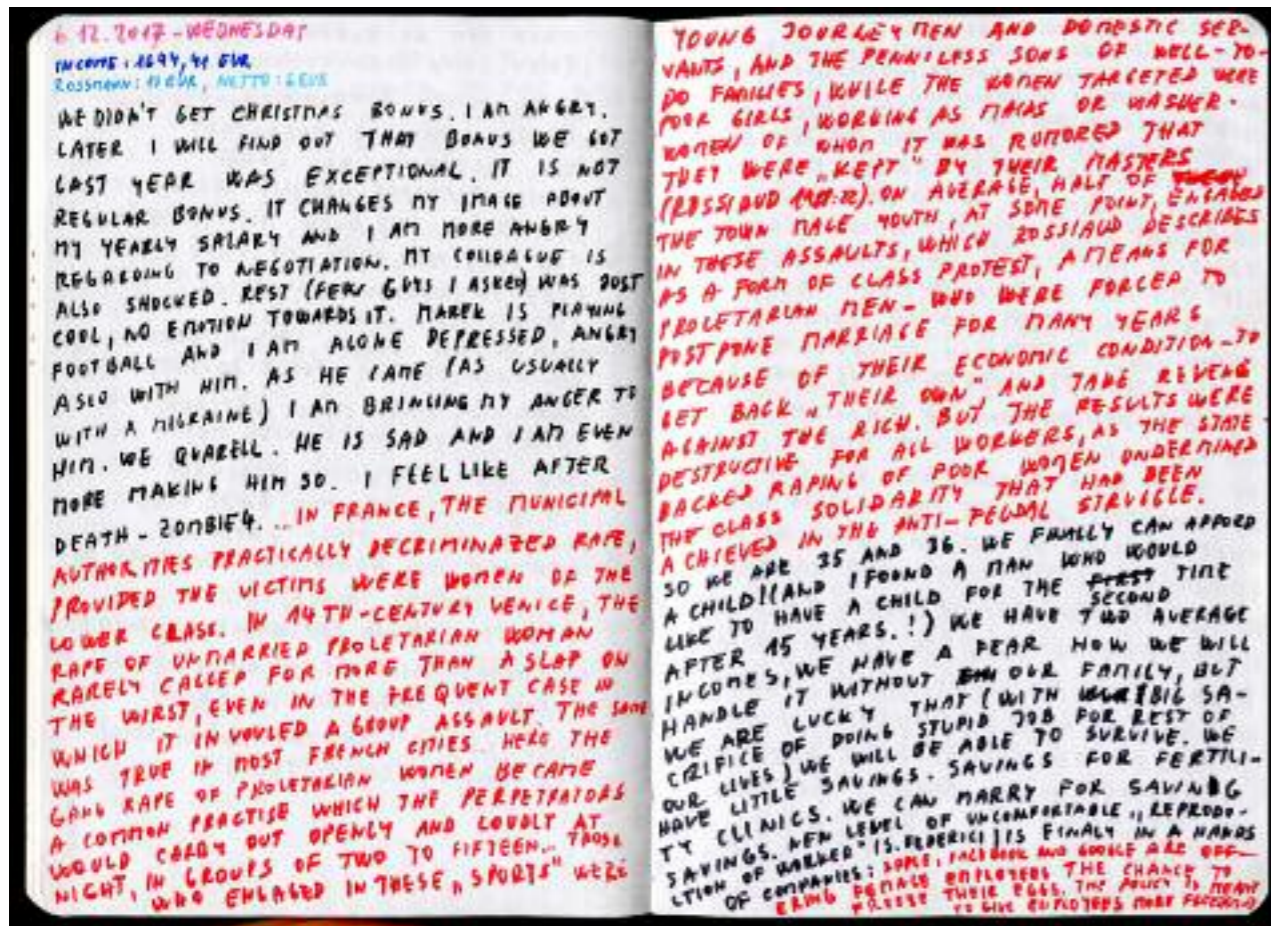 6.12.2017 - WEDNESDAY
INCOME: 1694,41 EUR
ROSSMANN: 17 EUR, NETTO: 6 EUR
WE DIDN'T GET CHRISTMAS BONUS. I AM ANGRY.
LATER I WILL FIND OUT THAT BONUS WE GOT
LAST YEAR WAS EXCEPTIONAL. IT IS NOT
REGULAR BONUS. IT CHANGES MY IMAGE ABOUT
MY YEARLY SALARY AND I AM MORE ANGRY
REGARDING TO NEGOTIATION. MY COLLEAGUE IS
ALSO SHOCKED. REST (FEW GUYS I ASKED) WAS JUST
COOL, NO EMOTION TOWARDS IT. MAREK IS PLAYING
FOOTBALL AND I AM ALONE DEPRESSED, ANGRY
ASLO WITH HIM. AS HE CAME (AS USUALLY
WITH A MIGRAINE) I AM BRINGING MY ANGER TO
HIM. WE QUARELL. HE IS SAD AND I AM EVEN
MORE MAKING HIM SO. I FEEL LIKE AFTER
DEATH - ZOMBIE4. ...IN FRANCE, THE MUNICIPAL
AUTHORITIES PRACTICALLY DECRIMINAZED RAPE,
PROVIDED THE VICTIMS WERE WOMEN OF THE
LOWER CLASS. IN 14TH-CENTURY VENICE, THE
RAPE OF UNMARRIED PROLETARIAN WOMAN
RARELY CALLED FOR MORE THAN A SLAP ON
THE WIRST, EVEN IN THE FREQUENT CASE IN
WHICH IT INVOULED A GROUP ASSAULT. THE SAME
WAS TRUE IN MOST FRENCH CITIES. HERE THE
GANG RAPE OF PROLETARIAN WOMEN BECAME
A COMMON PRACTISE WHICH THE PERPETRATORS
WOULD CARRY OUT OPENLY AND LOUDLY AT
NIGHT, IN GROUPS OF TWO TO FIFTEEN... THOSE
WHO ENGAGED IN THESE „SPORTS" WERE
YOUNG JOURLEYMEN AND DOMESTIC SER-
VANTS, AND THE PENNILESS SONS OF WELL-TO-
DO FAMILIES, WHILE THE WOMEN TARGETED WERE
POOR GIRLS, WORKING AS MAIDS OR WASHER-
WOMEN OF WHOM IT WAS RUMORED THAT
THEY WERE „KEPT" BY THEIR MASTERS
(ROSSIAUD 1988:22). ON AVERAGE, HALF OF
THE TOWN MALE YOUTH, AT SOME POINT, ENGAGED
IN THESE ASSAULTS, WHICH ROSSIAUD DESCRIBES
AS A FORM OF CLASS PROTEST, A MEANS FOR
PROLETARIAN MEN - WHO WERE FORCED TO
POSTPONE MARRIAGE FOR MANY YEARS
BECAUSE OF THEIR ECONOMIC CONDITION - TO
GET BACK „THEIR OWN" AND TAKE REVENG
AGAINST THE RICH. BUT THE RESULTS WERE
DESTRUCTIVE FOR ALL WORKERS, AS THE STATE-
BACKED RAPING OF POOR WOMEN UNDERMINED
THE CLASS SOLIDARITY THAT HAD BEEN
ACHIEVED IN THE ANTI-FEUDAL STRUGGLE.
SO WE ARE 35 AND 36. WE FINALLY CAN AFFORD
A CHILD!(AND I FOUND A MAN WHO WOULD
LIKE TO HAVE A CHILD FOR THE FIRST TIME
SECOND
AFTER 15 YEARS.!) WE HAVE TWO AVERAGE
INCOMES, WE HAVE A FEAR HOW WE WILL
HANDLE IT WITHOUT OUR FAMILY, BUT
WE ARE LUCKY THAT (WITH BIG SA-
CRIFICE OF DOING STUPID JOB FOR REST OF
OUR LIVES) WE WILL BE ABLE TO SURVIVE. WE
HAVE LITTLE SAVINGS. SAVINGS FOR FERTILI-
TY CLINICS. WE CAN MARRY FOR SAVING
SAVINGS. NEW LEVEL OF UNCOMFORTABLE „REPRODU-
CTION OF WORKER" IS. FEDERICI] IS FINALY IN A HANDS
OF COMPANIES: APPLE, FACEBOOK AND GOOGLE ARE OFF-
ERING FEMALE EMPLOYEES THE CHANCE TO
FREEZE THEIR EGGS. THE POLICY IS MEANT
TO GIVE EMPLOYEES MORE FREEDOM